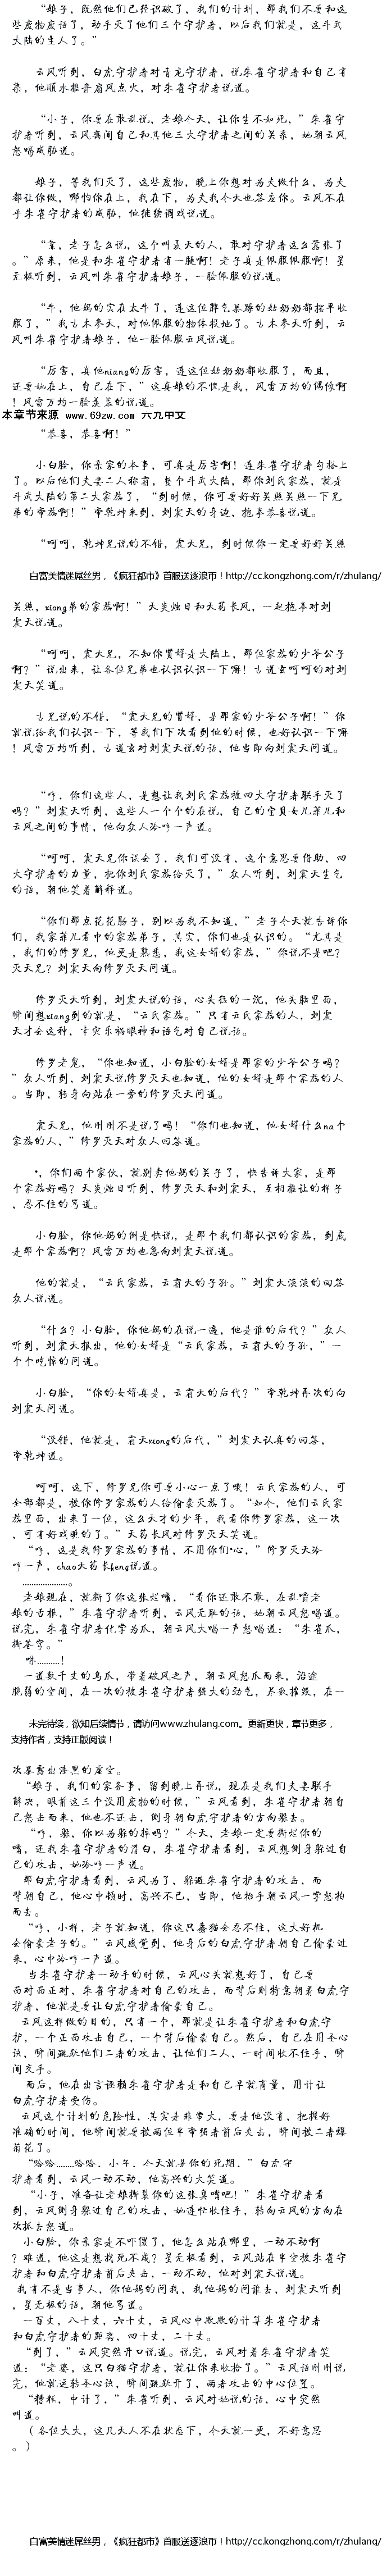 “娘子，既然他们已经识破了，我们的计划，那我们不要和这
些废物废话了，动手灭了他们三个守护者，以后我们就是，这斗武
大陆的主人了。”
云风听到，白虎守护者对青龙守护者，说朱雀守护者和自己有
染，他顺水推舟扇风点火，对朱雀守护者说道。
“小子，你要在敢乱说，老娘今天，让你生不如死，”朱雀守
护者听到，云风离间自己和其他三大守护者之间的关系，她朝云风
怒喝威胁道。
娘子，等我们灭了，这些废物，晚上你想对为夫做什么，为夫
都让你做，哪怕你在上，我在下，为夫我今天也答应你。云风不在
乎朱雀守护者的威胁，他继续调戏说道。
“靠，老子怎么说，这个叫夏天的人，敢对守护者这么嚣张了
。”原来，他是和朱雀守护者有一腿啊！老子真是佩服佩服啊！星
无极听到，云风叫朱雀守护者娘子，一脸佩服的说道。
“牛，他妈的实在太牛了，连这位脾气暴躁的姑奶奶都摆平收
服了，”我古木参天，对他佩服的物体投地了。古木参天听到，云
风叫朱雀守护者娘子，他一脸佩服云风说道。
“厉害，真他niang的厉害，连这位姑奶奶都收服了，而且，
还要她在上，自己在下，”这真娘的不愧是我，风雷万均的偶像啊
！风雷万均一脸羡慕的说道。
本章节来源 www.69zw.com 六九中文
“恭喜，恭喜啊！”
小白脸，你亲家的本事，可真是厉害啊！连朱雀守护者勾搭上
了。以后他们夫妻二人称霸，整个斗武大陆，那你刘氏家族，就是
斗武大陆的第二大家族了，“到时候，你可要好好关照关照一下兄
弟的帝族啊！”帝乾坤来到，刘震天的身边，抱拳恭喜说道。
“呵呵，乾坤兄说的不错，震天兄，到时候你一定要好好关照
白富美情迷屌丝男，《疯狂都市》首服送逐浪币！http://cc.kongzhong.com/r/zhulang/
关照，xiong弟的家族啊！”天炎烛日和天药长风，一起抱拳对刘
震天说道。
“呵呵，震天兄，不知你贤婿是大陆上，那位家族的少爷公子
啊？”说出来，让各位兄弟也认识认识一下嘛！古道玄呵呵的对刘
震天笑道。
古兄说的不错，“震天兄的贤婿，是那家的少爷公子啊！”你
就说给我们认识一下，等我们下次看到他的时候，也好认识一下嘛
！风雷万均听到，古道玄对刘震天说的话，他当即向刘震天问道。
“哼，你们这些人，是想让我刘氏家族被四大守护者联手灭了
吗？”刘震天听到，这些人一个个的在说，自己的宝贝女儿菲儿和
云风之间的事情，他向众人冷哼一声道。
“呵呵，震天兄你误会了，我们可没有，这个意思要借助，四
大守护者的力量，把你刘氏家族给灭了，”众人听到，刘震天生气
的话，朝他笑着解释道。
“你们那点花花肠子，别以为我不知道，”老子今天就告诉你
们，我家菲儿看中的家族弟子，其实，你们也是认识的。“尤其是
，我们的修罗兄，他更是熟悉，我这女婿的家族，”你说不是吧？
灭天兄？刘震天向修罗灭天问道。
修罗灭天听到，刘震天说的话，心头狂的一沉，他头脑里面，
瞬间想xiang到的就是，“云氏家族。”只有云氏家族的人，刘震
天才会这种，幸灾乐祸眼神和语气对自己说话。
修罗老鬼，“你也知道，小白脸的女婿是那家的少爷公子吗？
”众人听到，刘震天说修罗灭天也知道，他的女婿是那个家族的人
。当即，转身向站在一旁的修罗灭天问道。
震天兄，他刚刚不是说了吗！“你们也知道，他女婿什么na个
家族的人，”修罗灭天对众人回答道。
*，你们两个家伙，就别卖他妈的关子了，快告诉大家，是那
个家族好吗？天炎烛日听到，修罗灭天和刘震天，互相推让的样子
，忍不住的骂道。
小白脸，你他妈的倒是快说，是那个我们都认识的家族，到底
是那个家族啊？风雷万均也急向刘震天说道。
他的就是，“云氏家族，云霸天的子孙。”刘震天淡淡的回答
众人说道。
“什么？小白脸，你他妈的在说一遍，他是谁的后代？”众人
听到，刘震天报出，他的女婿是“云氏家族，云霸天的子孙，”一
个个吃惊的问道。
小白脸，“你的女婿真是，云霸天的后代？”帝乾坤再次的向
刘震天问道。
“没错，他就是，霸天xiong的后代，”刘震天认真的回答，
帝乾坤道。
呵呵，这下，修罗兄你可要小心一点了哦！云氏家族的人，可
全部都是，被你修罗家族的人给偷袭灭族了。“如今，他们云氏家
族里面，出来了一位，这么天才的少年，我看你修罗家族，这一次
，可有好戏瞧的了。”天药长风对修罗灭天笑道。
“哼，这是我修罗家族的事情，不用你们*心，”修罗灭天冷
哼一声，chao天药长feng说道。
....................。
老娘现在，就撕了你这张烂嘴，“看你还敢不敢，在乱嚼老
娘的舌根，”朱雀守护者听到，云风无耻的话，她朝云风怒喝道。
说完，朱雀守护者化掌为爪，朝云风大喝一声怒喝道：“朱雀爪，
撕苍穹。”
咻..........！
一道数千丈的鸟爪，带着破风之声，朝云风怒爪而来，沿途
脆弱的空间，在一次的被朱雀守护者强大的劲气，尽数摧毁，在一
未完待续，欲知后续情节，请访问www.zhulang.com。更新更快，章节更多，
支持作者，支持正版阅读！
次暴露出漆黑的虚空。
“娘子，我们的家务事，留到晚上再说，现在是我们夫妻联手
解决，眼前这三个没用废物的时候，”云风看到，朱雀守护者朝自
己怒击而来，他也不还击，侧身朝白虎守护者的方向躲去。
“哼，躲，你以为躲的掉吗？”今天，老娘一定要撕烂你的
嘴，还我朱雀守护者的清白，朱雀守护者看到，云风想侧身躲过自
己的攻击，她冷哼一声道。
那白虎守护者看到，云风为了，躲避朱雀守护者的攻击，而
背朝自己，他心中顿时，高兴不已，当即，他抬手朝云风一掌怒拍
而去。
“哼，小样，老子就知道，你这只蠢猫会忍不住，这大好机
会偷袭老子的。”云风感觉到，他身后的白虎守护者朝自己偷袭过
来，心中冷哼一声道。
当朱雀守护者一动手的时候，云风心头就想好了，自己要
面对面正对，朱雀守护者对自己的攻击，而背后则特意朝着白虎守
护者，他就是要让白虎守护者偷袭自己。
云风这样做的目的，只有一个，那就是让朱雀守护者和白虎守
护，一个正面攻击自己，一个背后偷袭自己。然后，自己在用圣心
诀，瞬间跳跃他们二者的攻击，让他们二人，一时间收不住手，瞬
间交手。
而后，他在出言诬赖朱雀守护者是和自己早就商量，用计让
白虎守护者受伤。
云风这个计划的危险性，其实是非常大，要是他没有，把握好
准确的时间，他瞬间就要被两位单帝强者前后夹击，瞬间被二者爆
菊花了。
“哈哈........哈哈、小子、今天就是你的死期、”白虎守
护者看到，云风一动不动，他高兴的大笑道。
“小子，准备让老娘撕裂你的这张臭嘴吧！”朱雀守护者看
到，云风侧身躲过自己的攻击，她连忙收住手，转向云风的方向在
次抓去怒道。
小白脸，你亲家是不吓傻了，他怎么站在哪里，一动不动啊
？难道，他这是想找死不成？星无极看到，云风站在半空被朱雀守
护者和白虎守护者前后夹击，一动不动，他对刘震天说道。
我肯不是当事人，你他妈的问我，我他妈的问谁去，刘震天听到
，星无极的话，朝他骂道。
一百丈，八十丈，六十丈，云风心中默默的计算朱雀守护者
和白虎守护者的距离，四十丈，二十丈。
“到了，”云风突然开口说道。说完，云风对着朱雀守护者笑
道：“老婆，这只白猫守护者，就让你来收拾了。”云风话刚刚说
完，他就运转圣心诀，瞬间跳跃开了，两者攻击的中心位置。
“糟糕，中计了，”朱雀听到，云风对她说的话，心中突然
叫道。
（各位大大，这几天人不在状态下，今天就一更，不好意思
。）
白富美情迷屌丝男，《疯狂都市》首服送逐浪币！http://cc.kongzhong.com/r/zhulang/